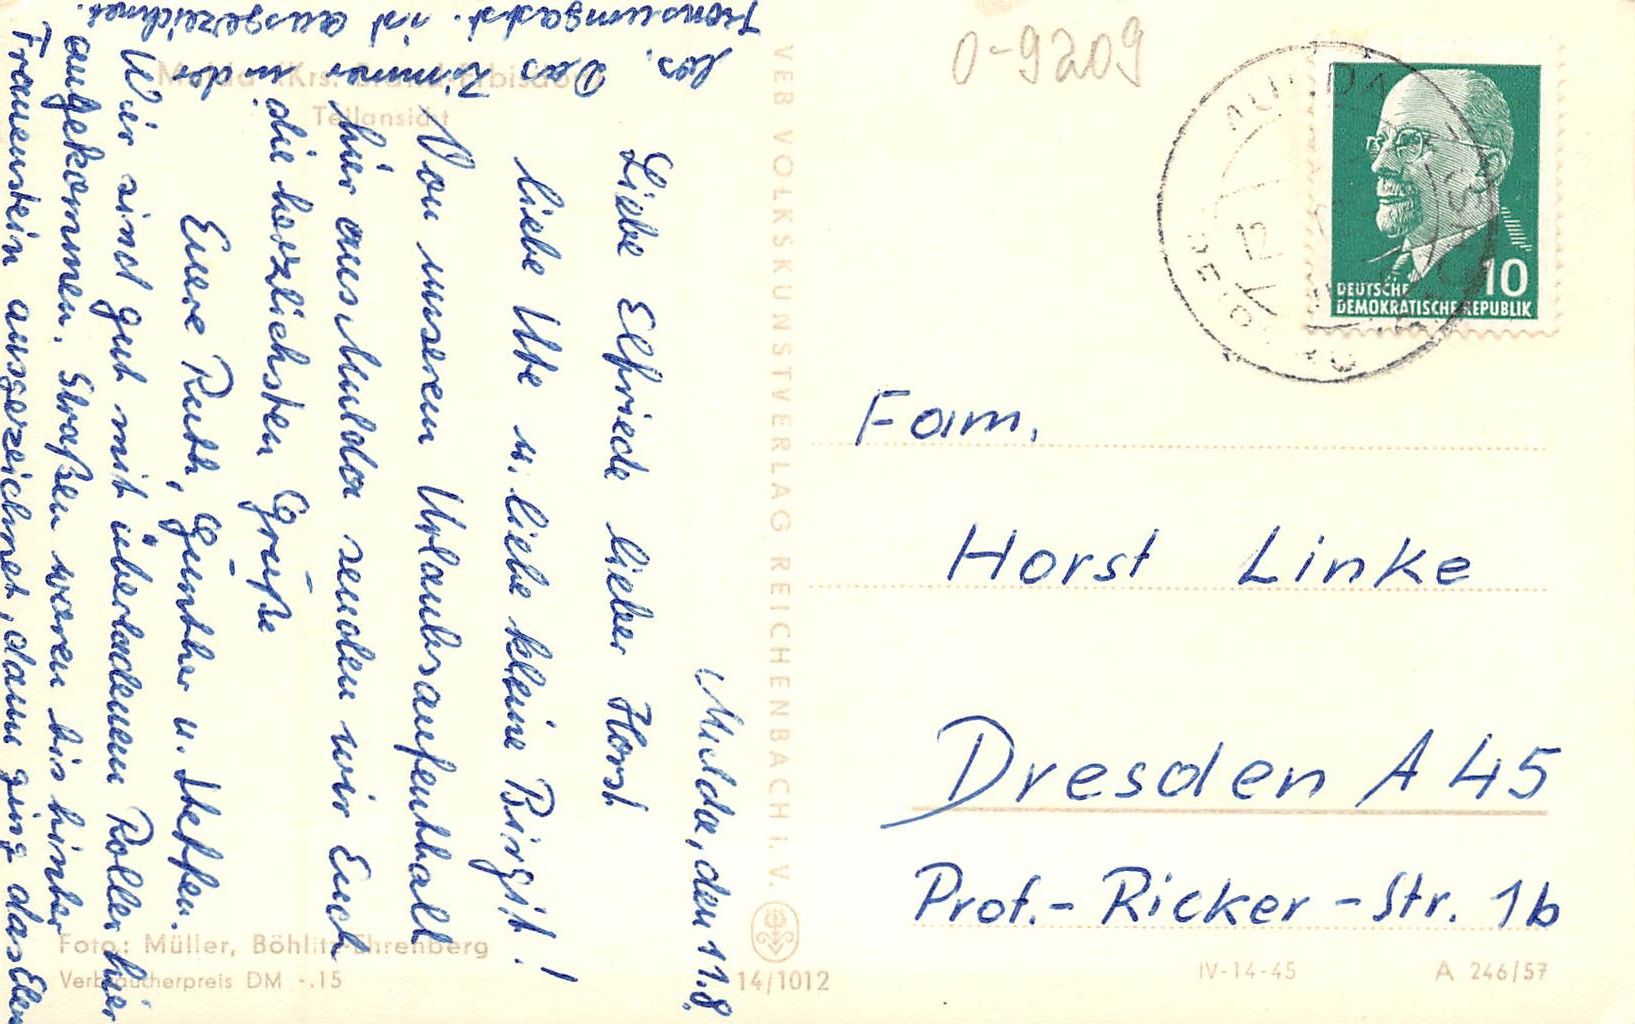 Mulda, den 11.8.
Liebe Elfriede lieber Horst
liebe Ute u. liebe kleine Birgit!
Von unserem Urlaubsaufenthalt
hier aus Mulda senden wir Euch
die herzlichsten Grüße
Eure Ruth, Günther u. Steffen.
Wir sind gut mit überladenem Roller hier
angekommen. Straßen waren bis hinter
Frauenstein ausgezeichnet, dann ging das Elen
los. Das Zimmer in der
Konsumgastst. ist ausgezeichnet.
Mulda (Krs. Brand-Erbisdorf)
Teilansicht
Foto: Müller, Böhlitz-Ehrenberg
Verbraucherpreis DM -.15
VEB VOLKSKUNSTVERLAG REICHENBACH I. V.
14/1012
0-9209
12.
DEUTSCHE
DEMOKRATISCHE REPUBLIK
10
Fam.
Horst Linke
Dresden A 45
Prof.-Ricker-Str. 1b
IV-14-45
A 246/57